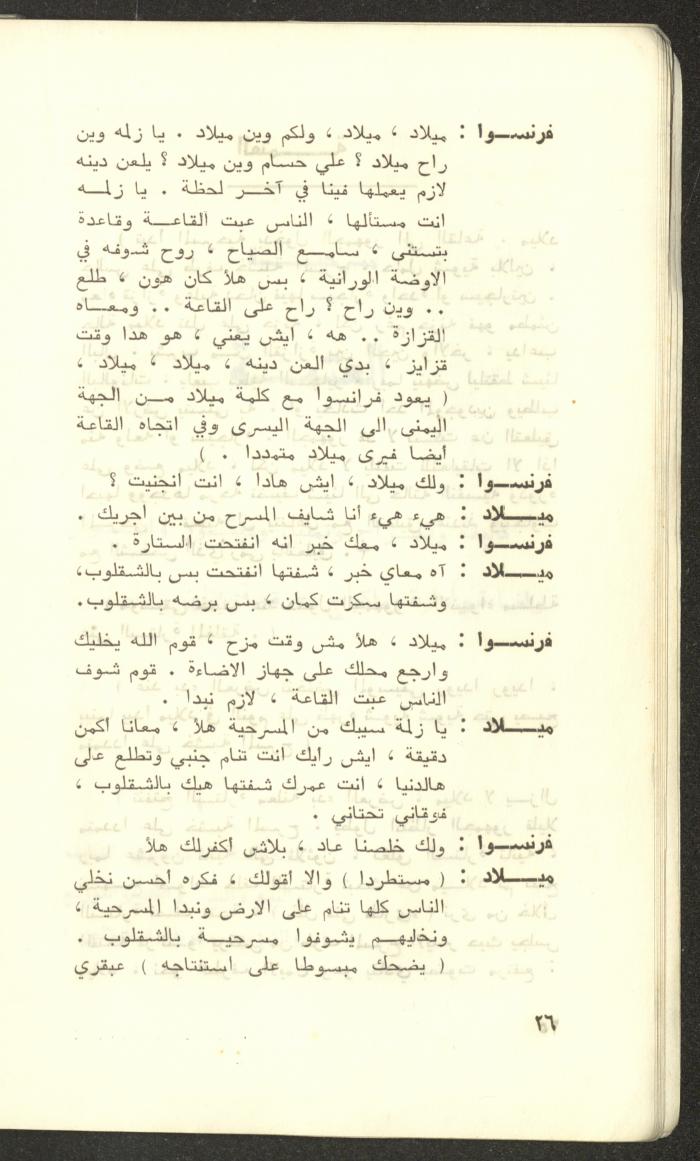 فرنســوا : ميلاد ، ميلاد ، ولكم وين ميلاد . يا زلمه وين
راح ميلاد ؟ علي حسام وين ميلاد ؟ يلعن دينه
لازم يعملها فينا في آخــر لحظة . يا زلمــه
انت مستألها ، الناس عبت القاعــة وقاعدة
بتستنى ، سامــع الصياح ، روح شوفه في
الاوضة الورانية ، بس هلأ كان هون ، طلع
.. وين راح ؟ راح على القاعة .. ومعــاه
القزازة .. هه ، ايش يعني ، هو هدا وقت
قزايز ، بدي العن دينه ، ميلاد ، ميلاد ،
( يعود فرانسوا مع كلمة ميلاد مــن الجهة
اليمنى الى الجهة اليسرى وفي اتجاه القاعة
أيضا فيرى ميلاد متمددا . )
فرنســوا : ولك ميلاد ، ايش هادا ، انت انجنيت ؟
ميــــلاد : هيء هيء أنا شايف المسرح من بين اجريك .
فرنســوا : ميلاد ، معك خبر انه انفتحت الستارة .
ميــــلاد : آه معاي خبر ، شفتها انفتحت بس بالشقلوب،
وشفتها سكرت كمان ، بس برضه بالشقلوب.
فرنســوا : ميلاد ، هلأ مش وقت مزح ، قوم الله يخليك
وارجع محلك على جهاز الاضاءة . قوم شوف
الناس عبت القاعة ، لازم نبدا .
ميــــلاد : يا زلمة سيبك من المسرحية هلأ ، معانا أكمن
دقيقة ، ايش رايك انت تنام جنبي وتطلع على
هالدنيا ، انت عمرك شفتها هيك بالشقلوب ،
فوقاني تحتاني .
فرنســوا : ولك خلصنا عاد ، بلاش أكفرلك هلأ
ميــــلاد : ( مستطردا ) والا أقولك ، فكره أحسن نخلي
الناس كلها تنام على الارض ونبدا المسرحية ،
ونخليهــم يشوفوا مسرحيــة بالشقلوب .
( يضحك مبسوطا على استنتاجه ) عبقري
٢٦